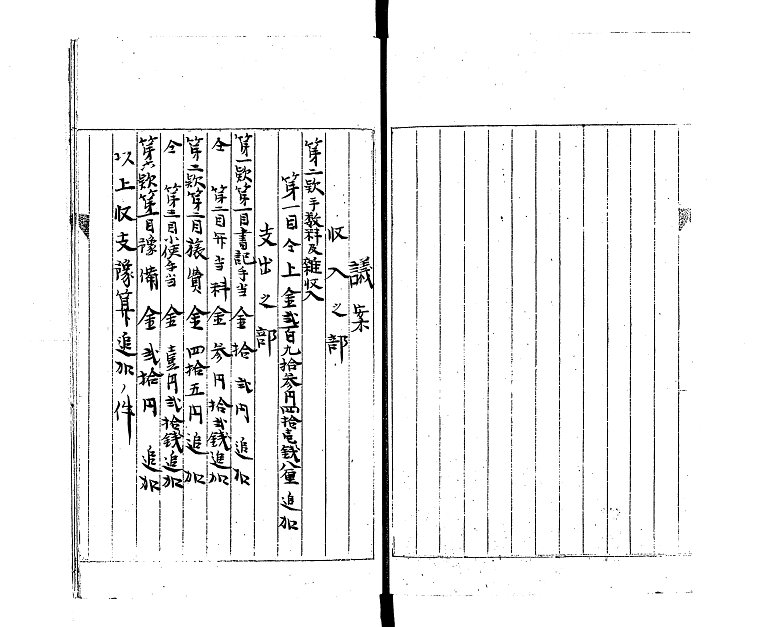 議案
収入之部
第二欵手数料及雑収入
第一目仝上金弐百九拾参円四拾壱銭八厘追加
支出之部
第一欵第一目書記手当金拾弐円追加
仝第二目弁当料金参円拾弐銭追加
第二欵第二目旅費金四拾五円追加
仝第三目小使手当金壹円弐拾銭追加
第六欵第一目豫備金弐拾円追加
以上収支豫算追加ノ件